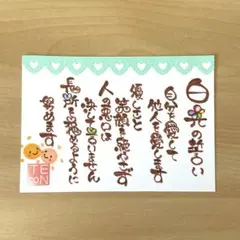 白光の誓い
自分を愛して
他人を愛します
優しさと
笑顔を絶やさず
人の悪口は
決して言いません
長所を褒めるように
努めます